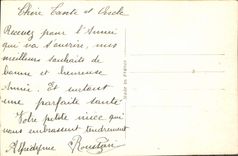 Chère Tante et Oncle
Recevez pour l'Année
qui va s'ouvrir, mes
meilleurs souhaits de
bonne et heureuse
Année. Et surtout
une parfaite santé
Votre petite nièce qui
vous embrassent tendrement